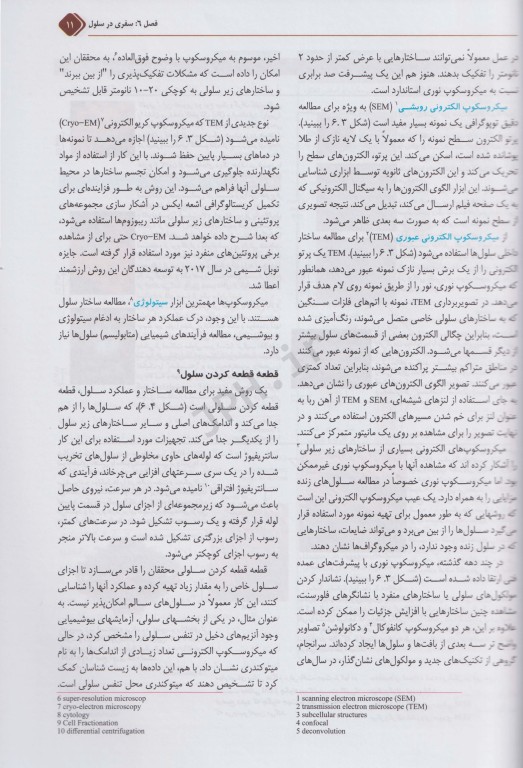 فصل ۶: سفری در سلول
۱۱
در عمل معمولاً نمی‌توانند ساختارهایی با عرض کمتر از حدود ۲
نانومتر را تفکیک بدهند. هنوز هم این یک پیشرفت صد برابری
نسبت به میکروسکوپ نوری استاندارد است.
میکروسکوپ الکترونی روبشی۱ (SEM) به ویژه برای مطالعه
دقیق توپوگرافی یک نمونه بسیار مفید است (شکل ۳ .۶ را ببینید).
پرتو الکترون سطح نمونه را که معمولاً با یک لایه نازک از طلا
پوشانده شده است، اسکن می‌کند. این پرتو، الکترون‌های سطح را
تحریک می‌کند و این الکترون‌های ثانویه توسط ابزاری شناسایی
می‌شوند. این ابزار الگوی الکترون‌ها را به سیگنال الکترونیکی که
به یک صفحه فیلم ارسال می‌کند، تبدیل می‌کند. نتیجه تصویری
از سطح نمونه است که به صورت سه بعدی ظاهر می‌شود.
از میکروسکوپ الکترونی عبوری (TEM)۲ برای مطالعه ساختار
داخلی سلول‌ها استفاده می‌شود (شکل ۳. ۶ را ببینید). TEM یک پرتو
الکترونی را از یک برش بسیار نازک نمونه عبور می‌دهد، همانطور
که میکروسکوپ نوری، نور را از طریق نمونه روی لام هدف قرار
می‌دهد. در تصویربرداری TEM، نمونه با اتم‌های فلزات سنگین
که به ساختارهای سلولی خاصی متصل می‌شوند، رنگ‌آمیزی شده
است، بنابراین چگالی الکترون بعضی از قسمت‌های سلول بیشتر
از دیگر قسمها می‌شود. الکترون‌هایی که از نمونه عبور می‌کنند
در مناطق متراکم بیشتر پراکنده می‌شوند، بنابراین تعداد کمتری
عبور می‌کنند. تصویر الگوی الکترون‌های عبوری را نشان می‌دهد.
به جای استفاده از لنزهای شیشه‌ای، SEM و TEM از آهن ربا به
عنوان لنز برای خم شدن مسیرهای الکترون استفاده می‌کنند و در
نهایت تصویر را برای مشاهده بر روی یک مانیتور متمرکز می‌کنند.
میکروسکوپ‌های الکترونی بسیاری از ساختارهای زیر سلولی۳
را آشکار کرده اند که مشاهده آنها با میکروسکوپ نوری غیرممکن
بود اما میکروسکوپ نوری خصوصاً در مطالعه سلول‌های زنده
مزایایی را به همراه دارد. یک عیب میکروسکوپ الکترونی این است
که روشهایی که به طور معمول برای تهیه نمونه مورد استفاده قرار
می‌گیرد سلول‌ها را از بین می‌برد و می‌تواند ضایعات، ساختارهایی
که در سلول زنده وجود ندارد، را در میکروگراف‌ها نشان دهند.
در چند دهه گذشته، میکروسکوپ نوری با پیشرفت‌های عمده
فنی ارتقا داده شده است (شکل ۳. ۶ را ببینید). نشاندار کردن
مولکول‌های سلولی یا ساختارهای منفرد با نشانگرهای فلورسنت،
مشاهده چنین ساختارهایی با افزایش جزئیات را ممکن کرده است.
علاوه بر این، هر دو میکروسکوپ کانفوکال۴ و دکانولوشن۵ تصاویر
واضح تر سه بعدی از بافت‌ها و سلول‌ها ایجاد کرده‌اند. سرانجام،
گروهی از تکنیک‌های جدید و مولکول‌های نشان‌گذار، در سال‌های
اخیر، موسوم به میکروسکوپ با وضوح فوق‌العاده۶، به محققان این
امکان را داده است که مشکلات تفکیک‌پذیری را "از بین ببرند"
و ساختارهای زیر سلولی به کوچکی ۲۰-۱۰ نانومتر قابل تشخیص
شود.
نوع جدیدی از TEM که میکروسکوپ کریو الکترونی۷ (Cryo-EM)
نامیده می‌شود (شکل ۳. ۶ را ببینید) اجازه می‌دهد تا نمونه‌ها
در دماهای بسیار پایین حفظ شوند. با این کار از استفاده از مواد
نگهدارنده جلوگیری می‌شود و امکان تجسم ساختارها در محیط
سلولی آنها فراهم می‌شود. این روش به طور فزاینده‌ای برای
تکمیل کریستالوگرافی اشعه ایکس در آشکار سازی مجموعه‌های
پروتئینی و ساختارهای زیر سلولی مانند ریبوزوم‌ها استفاده می‌شود،
که بعدا شرح داده خواهد شد. Cryo-EM حتی برای از مشاهده
برخی پروتئین‌های منفرد نیز مورد استفاده قرار گرفته است. جایزه
نوبل شیمی در سال ۲۰۱۷ به توسعه دهندگان این روش ارزشمند
اعطا شد.
میکروسکوپ‌ها مهمترین ابزار سیتولوژی۸، مطالعه ساختار سلول
هستند. با این وجود، درک عملکرد هر ساختار به ادغام سیتولوژی
و بیوشیمی، مطالعه فرآیندهای شیمیایی (متابولیسم) سلول‌ها نیاز
دارد.
قطعه قطعه کردن سلول۹
یک روش مفید برای مطالعه ساختار و عملکرد سلول، قطعه
قطعه کردن سلولی است (شکل ۴. ۶)، که سلول‌ها را از هم
جدا می‌کند و اندامک‌های اصلی و سایر ساختارهای زیر سلول
را از یکدیگر جدا می‌کند. تجهیزات مورد استفاده برای این کار
سانتریفیوژ است که لوله‌های حاوی مخلوطی از سلول‌های تخریب
شده را در یک سری سرعتهای افزایی می‌چرخاند، فرآیندی که
سانتریفیوژ افتراقی۱۰ نامیده می‌شود. در هر سرعت، نیروی حاصل
باعث می‌شود که زیرمجموعه‌ای از اجزای سلول در قسمت پایین
لوله قرار گرفته و یک رسوب تشکیل شود. در سرعت‌های کمتر،
رسوب از اجزای بزرگتری تشکیل شده است و سرعت بالاتر منجر
به رسوب اجزای کوچکتر می‌شود.
قطعه قطعه کردن سلولی محققان را قادر می‌سازد تا اجزای
سلول خاص را به مقدار زیاد تهیه کرده و عملکرد آنها را شناسایی
کنند، این کار معمولاً در سلول‌های سالم امکان‌پذیر نیست. به
عنوان مثال، در یکی از بخشهای سلولی، آزمایشهای بیوشیمیایی
وجود آنزیم‌های دخیل در تنفس سلولی را مشخص کرد، در حالی
که میکروسکوپ الکترونی تعداد زیادی از اندامک‌ها را به نام
میتوکندری نشان داد. با هم، این داده‌ها به زیست شناسان کمک
کرد تا تشخیص دهند که میتوکندری محل تنفس سلولی است.
1 scanning electron microscope (SEM)
2 transmission electron microscope (TEM)
3 subcellular structures
4 confocal
5 deconvolution
6 super-resolution microscop
7 cryo-electron microscopy
8 cytology
9 Cell Fractionation
10 differential centrifugation